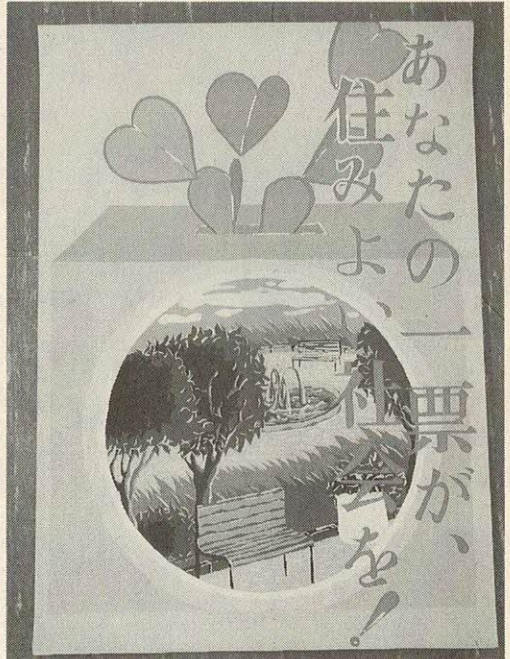 あなたの一票が、
住みよい社会を!